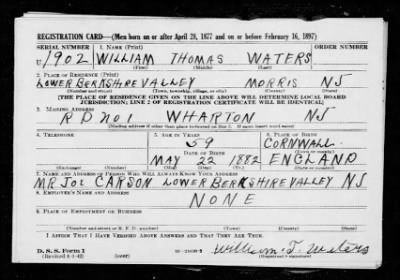 REGISTRATION CARD—(Men born on or after April 28, 1877 and on or before February 16, 1897)
SERIAL NUMBER 1. NAME (Print) ORDER NUMBER
U 1902 WILLIAM THOMAS WATERS
(First) (Middle) (Last)
2. PLACE OF RESIDENCE (Print)
LOWER BERKSHIRE VALLEY MORRIS NJ
(Number and street) (Town, township, village, or city) (County) (State)
[THE PLACE OF RESIDENCE GIVEN ON THE LINE ABOVE WILL DETERMINE LOCAL BOARD
JURISDICTION; LINE 2 OF REGISTRATION CERTIFICATE WILL BE IDENTICAL]
3. MAILING ADDRESS
R D NO 1 WHARTON NJ
[Mailing address if other than place indicated on line 2. If same insert word same]
4. TELEPHONE 5. AGE IN YEARS 6. PLACE OF BIRTH
59 CORNWALL
DATE OF BIRTH (Town or county)
MAY 22 1882 ENGLAND
(Exchange) (Number) (Mo.) (Day) (Yr.) (State or country)
7. NAME AND ADDRESS OF PERSON WHO WILL ALWAYS KNOW YOUR ADDRESS
MR JOE CARSON LOWER BERKSHIRE VALLEY NJ
8. EMPLOYER'S NAME AND ADDRESS
NONE
9. PLACE OF EMPLOYMENT OR BUSINESS
(Number and street or R. F. D. number) (Town) (County) (State)
I AFFIRM THAT I HAVE VERIFIED ABOVE ANSWERS AND THAT THEY ARE TRUE.
D. S. S. Form 1
(Revised 4-1-42) William T. Waters
(Registrant's signature)